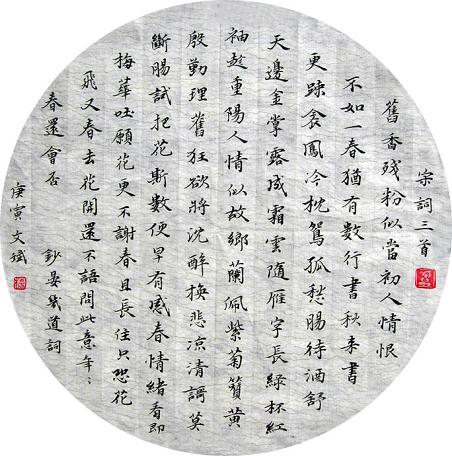 宋詞三首
舊香殘粉似當初人情恨
不如一春猶有數行書秋来書
更踈衾鳳冷枕鴛孤愁腸待酒舒
天邊金掌露成霜雲隨雁字長綠杯紅
袖趁重陽人情似故鄉蘭佩紫菊簪黃
殷勤理舊狂欲將沈醉換悲凉清謌莫
斷腸試把花斯數便早有感春情緒看即
梅華吐願花更不謝春且長住只恐花
飛又春去花開還不語問此意年〻
春還會否 鈔晏幾道詞
庚寅文斌